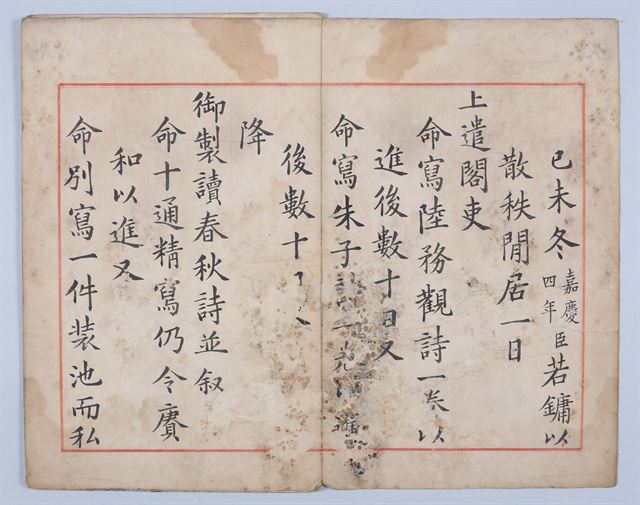 己未冬嘉慶四年臣若鏞以
散秩閒居一日
上遣閣吏
命寫陸務觀詩一卷以
進後數十日又
命寫朱子
後數十
降
御製讀春秋詩並叙
命十通精寫仍令賡
和以進又
命別寫一件装池而私